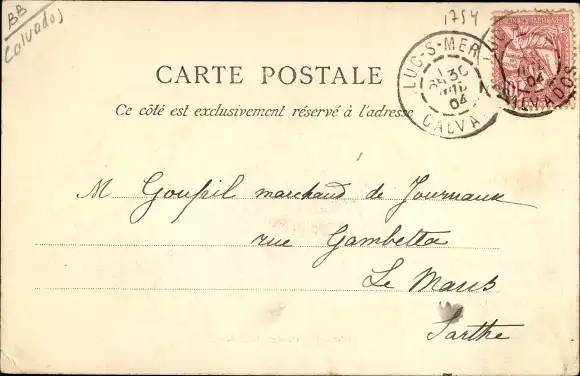 BB
Calvados
1754
CARTE POSTALE
Ce côté est exclusivement réservé à l'adresse
LUC-S-MER
04
CALVA
04
CALVADOS
M Goupil marchand de Journaux
rue Gambetta
Le Mans
Sarthe